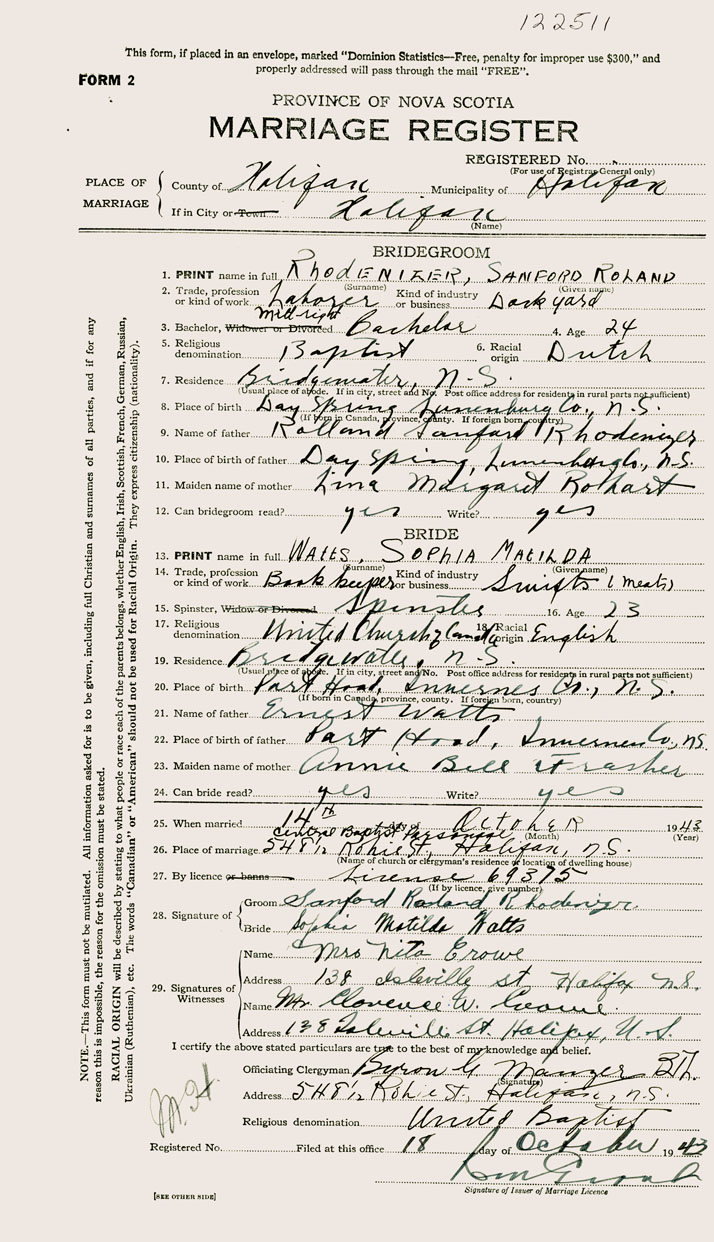 122511
This form, if placed in an envelope, marked "Dominion Statistics—Free, penalty for improper use $300," and
properly addressed will pass through the mail "FREE".
FORM 2
PROVINCE OF NOVA SCOTIA
MARRIAGE REGISTER
REGISTERED No.
(For use of Registrar General only)
PLACE OF MARRIAGE
County of Halifax Municipality of Halifax
If in City or Town Halifax
(Name)
BRIDEGROOM
1. PRINT name in full RHODENIZER, SANFORD ROLAND
(Surname) (Given name)
2. Trade, profession or kind of work Laborer Kind of industry or business Dockyard
Millright
3. Bachelor, Widower or Divorced Bachelor 4. Age 24
5. Religious denomination Baptist 6. Racial origin Dutch
7. Residence Bridgewater, N.S.
(Usual place of abode. If in city, street and No. Post office address for residents in rural parts not sufficient)
8. Place of birth Day Spring Lunenburg Co., N.S.
(If born in Canada, province, county. If foreign born, country)
9. Name of father Rolland Sanford Rhodenizer
10. Place of birth of father Day Spring, Lunenburg Co., N.S.
11. Maiden name of mother Lina Margaret Rothart
12. Can bridegroom read? yes Write? yes
BRIDE
13. PRINT name in full WATTS, SOPHIA MATILDA
(Surname) (Given name)
14. Trade, profession or kind of work Bookkeeper Kind of industry or business Swifts (meats)
15. Spinster, Widow or Divorced Spinster 16. Age 23
17. Religious denomination United Church of Canada 18. Racial origin English
19. Residence Bridgewater, N.S.
(Usual place of abode. If in city, street and No. Post office address for residents in rural parts not sufficient)
20. Place of birth Port Hood, Inverness Co., N.S.
(If born in Canada, province, county. If foreign born, country)
21. Name of father Ernest Watts
22. Place of birth of father Port Hood, Inverness Co, N.S.
23. Maiden name of mother Annie Bell Frasher
24. Can bride read? yes Write? yes
25. When married 14th day of OCTOBER 1943
(Month) (Year)
Central Baptist Parsonage
26. Place of marriage 548½ Robie St., Halifax, N.S.
(Name of church or clergyman's residence or location of dwelling house)
27. By licence or banns License 69375
(If by licence, give number)
28. Signature of
Groom Sanford Roland Rhodenizer
Bride Sophia Matilda Watts
29. Signatures of Witnesses
Name Mrs Nita Crowe
Address 138 Isleville St Halifax N.S.
Name Mr. Clarence W. Crowe
Address 138 Isleville St. Halifax, N.S.
I certify the above stated particulars are true to the best of my knowledge and belief.
Officiating Clergyman Byron G. Manzer
(Signature)
Address 548½ Robie St, Halifax, N.S.
Religious denomination United Baptist
Registered No. Filed at this office 18 day of October 1943
Signature of Issuer of Marriage Licence
[SEE OTHER SIDE]
NOTE.—This form must not be mutilated. All information asked for is to be given, including full Christian and surnames of all parties, and if for any
reason this is impossible, the reason for the omission must be stated.
RACIAL ORIGIN will be described by stating to what people or race each of the parents belongs, whether English, Irish, Scottish, French, German, Russian,
Ukrainian (Ruthenian), etc. The words "Canadian" or "American" should not be used for Racial Origin. They express citizenship (nationality).